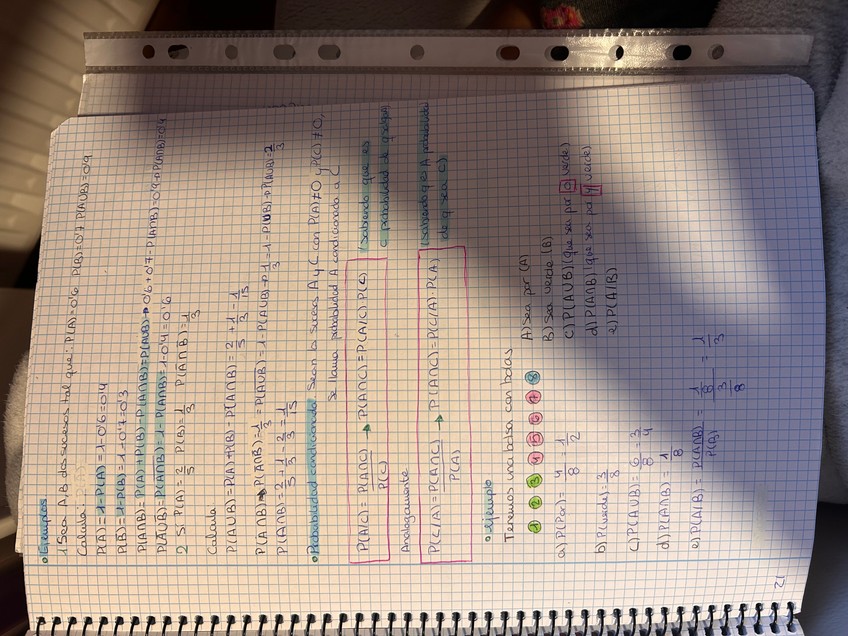 • Ejemplos
1 Sean A, B dos sucesos tal que: P(A)=0'6 P(B)=0'7 P(AUB)=0'9
Calcula:
P(A)=1-P(A)=1-0'6=0'4
P(B)=1-P(B)=1-0'7=0'3
P(A∩B)=P(A)+P(B)-P(A∩B)=P(AUB)→0'6+0'7-P(A∩B)=0'9→P(A∩B)=0'4
P(A∩B)=1-P(A∩B)=1-0'4=0'6
2 Si P(A)=2/5 P(B)=1/3 P(A∩B)=1/3
Calcula
P(AUB)=P(A)+P(B)-P(A∩B)=2/5+1/3-1/15
P(A∩B)→P(A∩B)=1/3=P(AUB)=1-P(AUB)→1/3=1-P(AUB)→P(AUB)=2/3
P(A∩B)=2/5+1/3-2/3=1/15
• Probabilidad condicionada Sean 2 sucesos A y C con P(A)≠0 y P(C)≠0,
se llama probabilidad A condicionada a C
P(A/C)=P(A∩C)/P(C) → P(A∩C)=P(A/C)·P(C) (Sabiendo que es
C probabilidad de q salga A)
Analogamente
P(C/A)=P(A∩C)/P(A) → P(A∩C)=P(C/A)·P(A) (Sabiendo q es A probabilidad
de q sea C)
• Ejemplo
Tenemos una bolsa con bolas
1 2 3 4 5 6 7 8
A) Sea par (A)
B) Sea verde (B)
C) P(AUB) (que sea par o verde)
d) P(A∩B) (que sea par y verde)
e) P(A/B)
a) P(Par)=4/8=1/2
b) P(verde)=3/8
C) P(AUB)=6/8=3/4
d) P(A∩B)=1/8
e) P(A/B)=P(A∩B)/P(B)=1/8/3/8=1/3
12